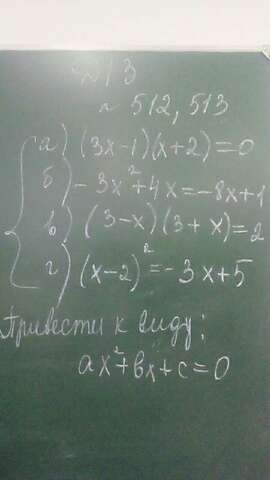 п 13
~ 512, 513
а) (3x-1)(x+2)=0
б) -3x²+4x=-8x+1
в) (3-x)(3+x)=2
г) (x-2)²=-3x+5
Привести к виду:
ax²+bx+c=0